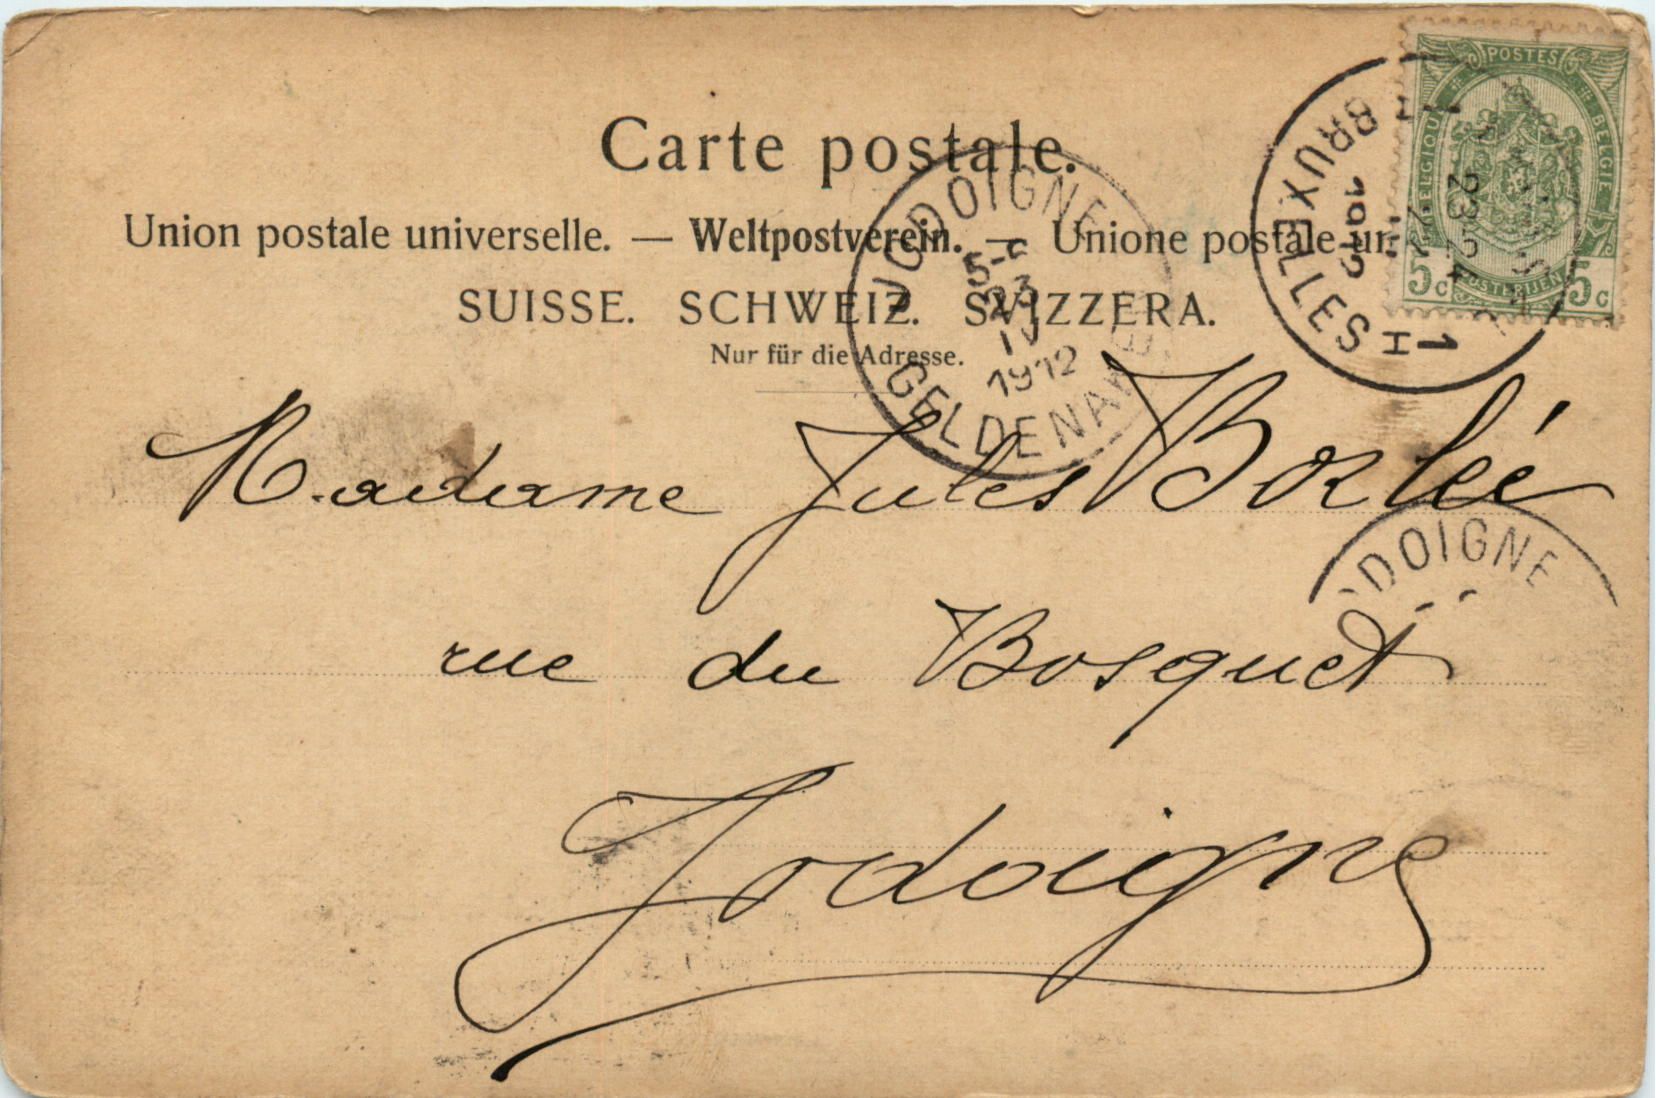 Carte postale.
Union postale universelle. — Weltpostverein. — Unione postale un
SUISSE. SCHWEIZ. SVIZZERA.
Nur für die Adresse.
Madame Jules Borlée
rue du Bosquet
Jodoigne
POSTES
BELGIQUE
BELGIE
POSTERIJEN
5c 5c
1 BRUXELLES 1
H H
23
1912
JODOIGNE
5-
23
IV
1912
GELDENAKEN
DOIGNE